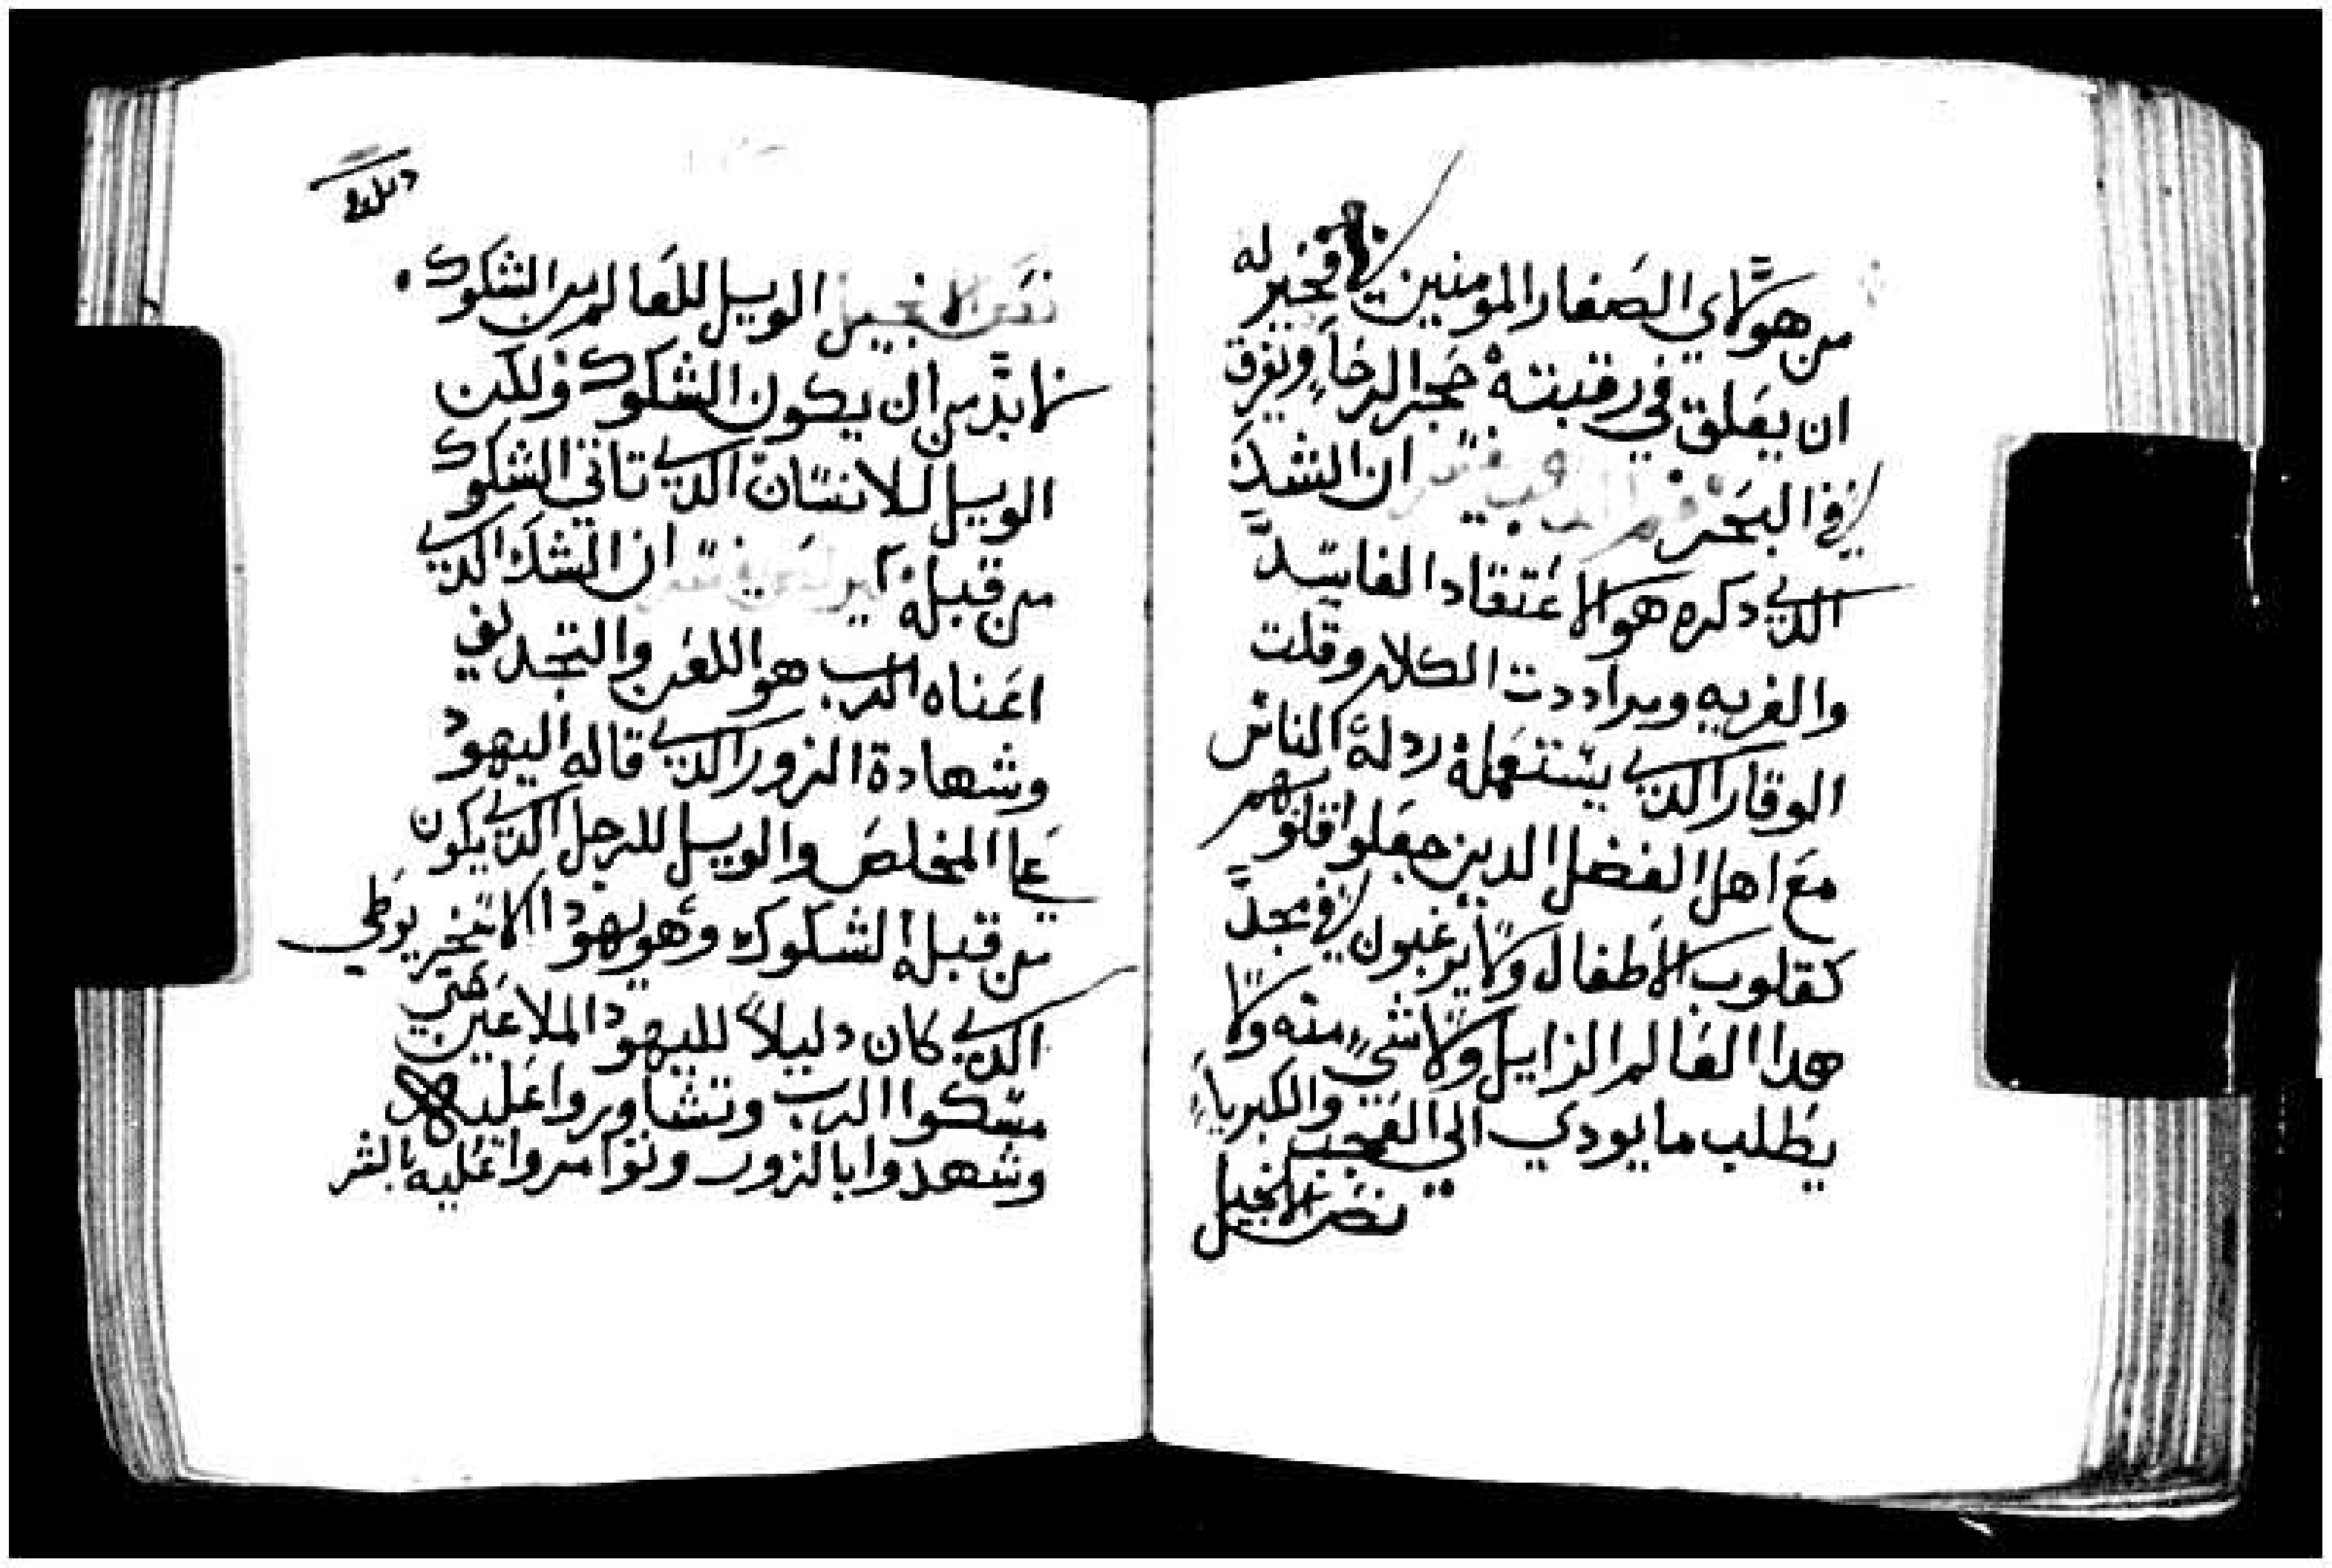 من هولاي الصغار المومنين بي فخير له
ان يعلق في رقبته حجر الرحا ويغرق
في البحر فم الدهب يفسر ان الشك
الدي دكره هو الاعتقاد الفاسد
والفريه ومراددت الكلام وقلت
الوقار الدي يستعمله ردلة الناس
مع اهل الفضل الدين جعلوا قلوبهم
كقلوب الاطفال ولا يرغبون في مجد
هدا العالم الزايل ولا شي منه ولا
يطلب ما يودي الي العجب والكبرياء
نص الانجيل
نص الانجيل الويل للعالم من الشكوك
لابد من ان يكون الشكوك ولكن
الويل للانسان الدي تاتي الشكوك
من قبله يفسر ان الشك الدي
اعناه الرب هو اللعن والتجديف
وشهادة الزور الدي قاله اليهود
علي المخلص والويل للرجل الدي يكون
من قبله الشكوك وهو يهودا الاسخريوطي
الدي كان دليلا لليهود الملاعين حتي
مسكوا الرب وتشاوروا عليه
وشهدوا بالزور وتوامروا عليه بالشر